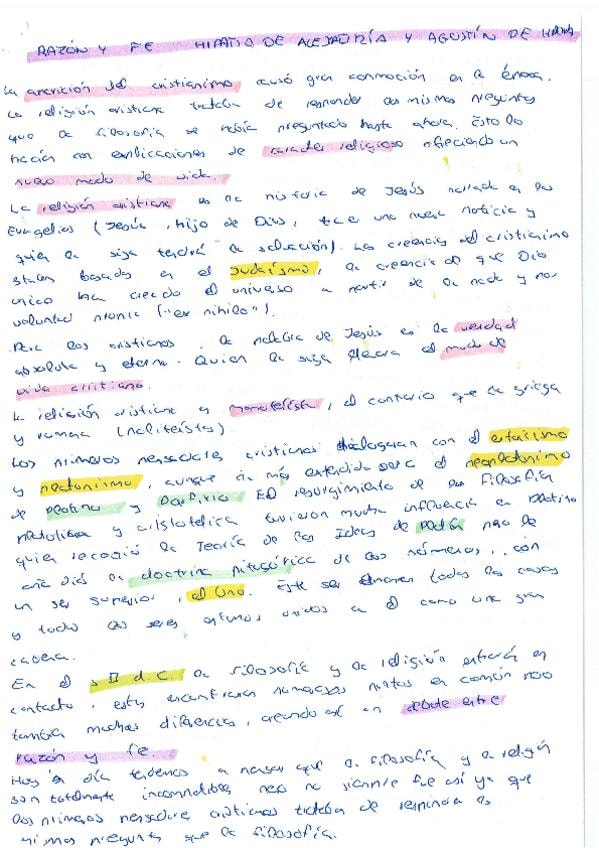 RAZÓN Y FE HIPATIA DE ALEJADRÍA Y AGUSTÍN DE
La aparición del cristianismo causó gran conmoción en la época.
La religión cristiana trataba de responder las mismas preguntas
que la filosofía se había preguntado hasta ahora. Esto lo
hacían con explicaciones de caracter religioso ofreciendo un
nuevo modo de vida.
La religión cristiana es la historia de Jesús narrada en los
Evangelios (Jesús, hijo de Dios, trae una nueva noticia y
quien la siga tendrá la salvación). Las creencias del cristianimo
están basadas en el Judaísmo, la creencia de que Dio
único ha creado el universo a partir de la nada y por
voluntad propia ("ex nihilo").
Para los cristianos, la palabra de Jesús es la verdad
absoluta y eterna. Quien la siga llevara el modo de
vida cristiano.
La religión cristiana es monoteísta, al contrario que la griega
y romana (politeístas).
Los primeros pensadores cristianos dialogaran con el estoicismo
y platonismo, aunque la más extendida será el neoplatonismo
de Plotino y Porfirio. El resurgimiento de la filosofía
platónica y aristotélica tuvieron mucha influencia en Plotino
quien recogió la Teoría de las Ideas de Platón pero le
añadió la doctrina pitagórica de los números, con
un ser superior, el Uno. De este ser emanan todas las cosas
y todos los seres estamos unidos a él como una gran
cadena.
En el s II d.C. la filosofía y la religión entrarán en
contacto, estas encontraran numerosos puntos en común pero
también muchas diferencias, creando así un debate entre
razón y fe.
Hoy en día tendemos a pensar que la filosofía y la religión
son totalmente incompatibles pero no siempre fue así ya que
los primeros pensadores cristianos trataban de responder las
mismas preguntas que la filosofía.